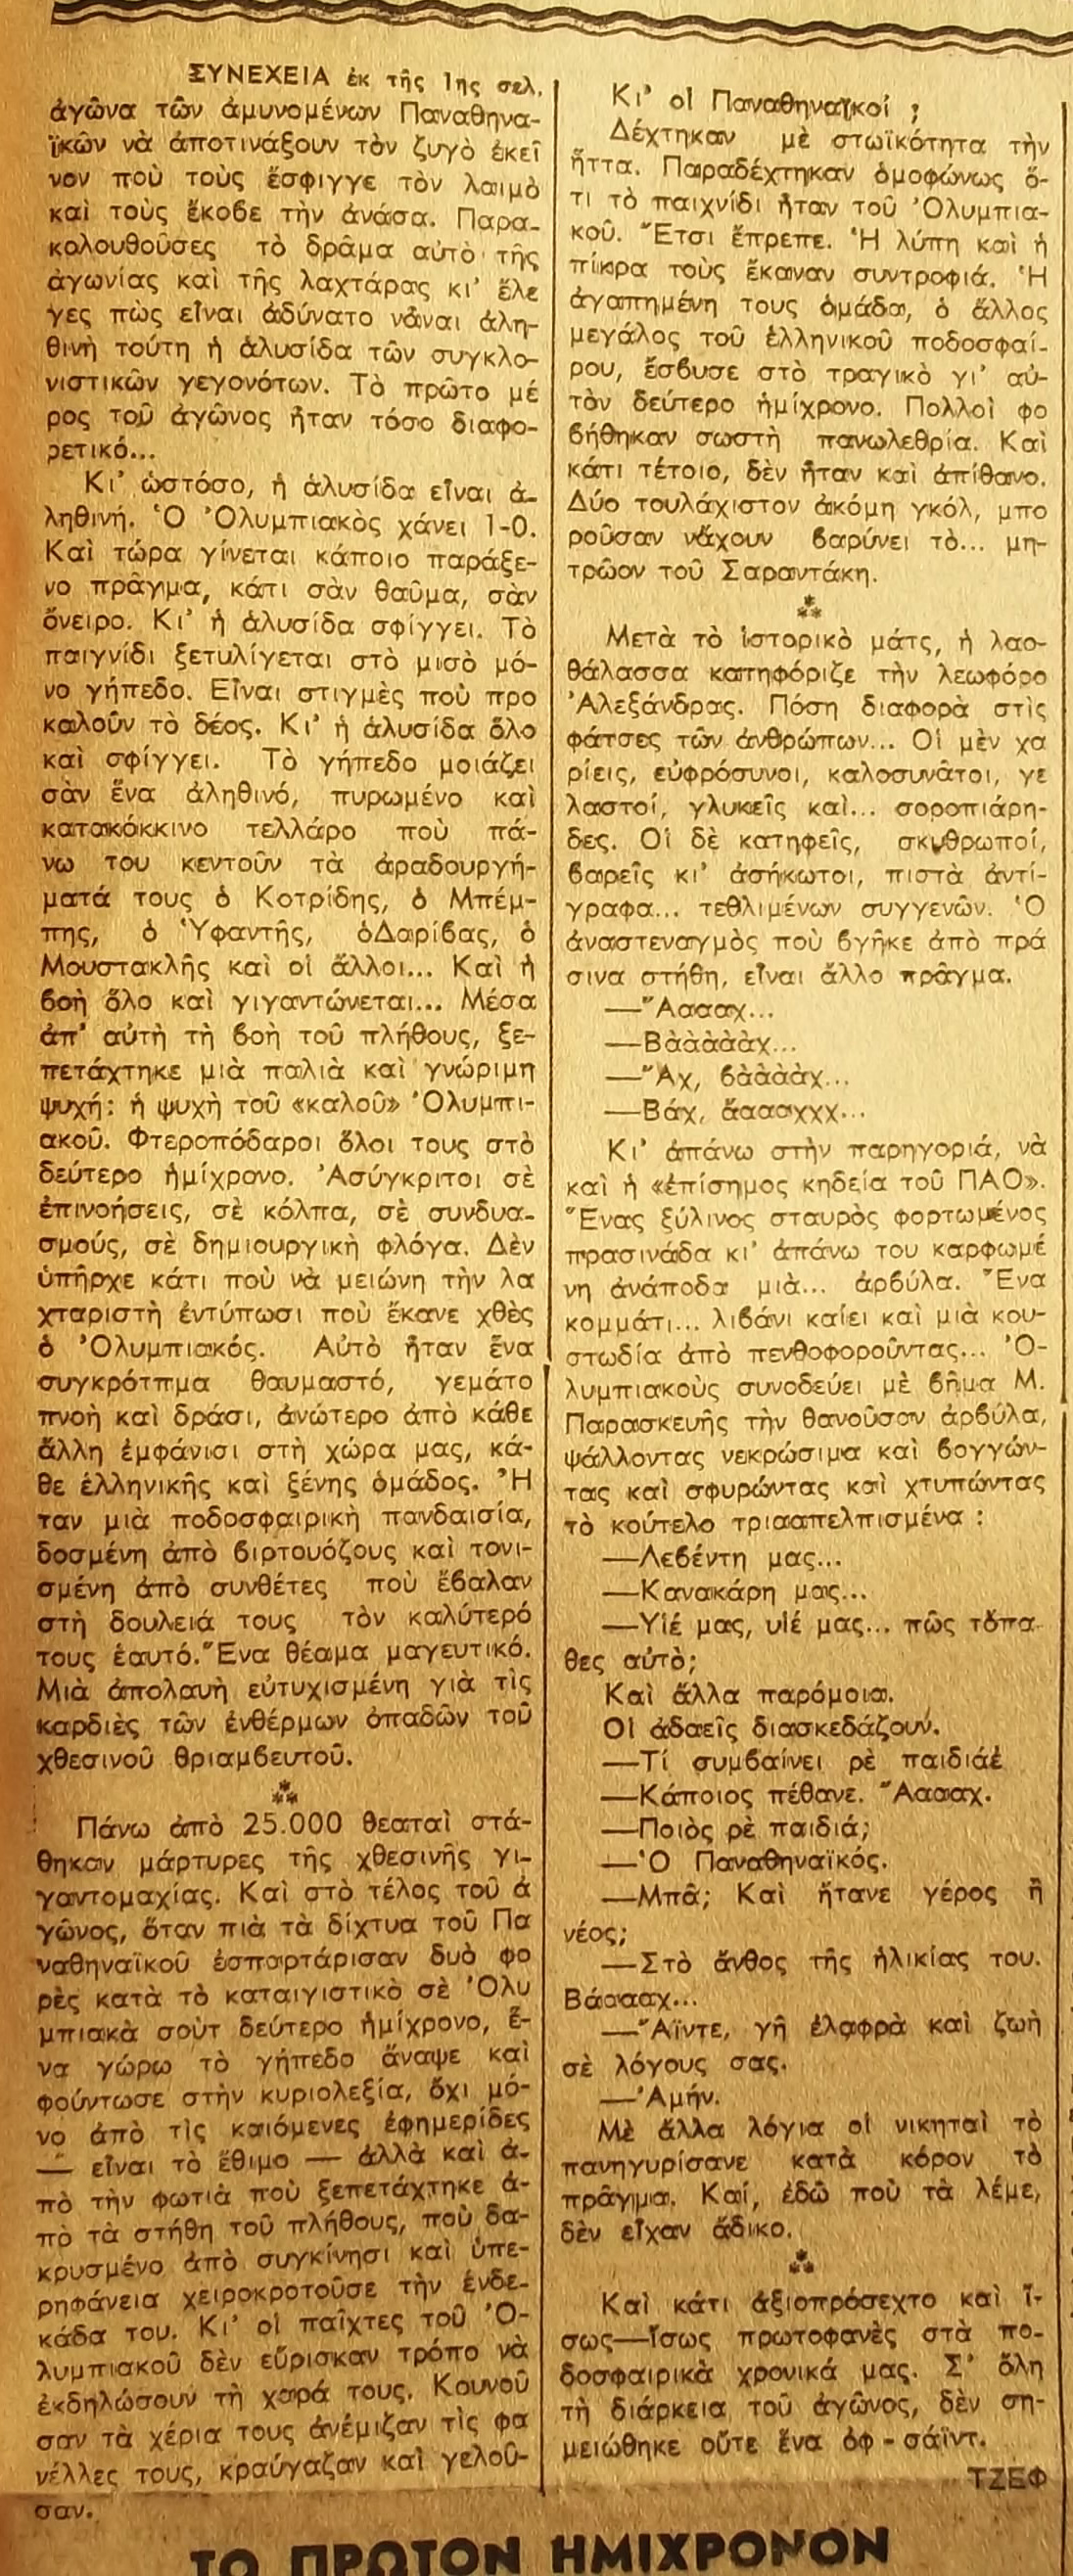 ΣΥΝΕΧΕΙΑ ἐκ τῆς 1ης σελ.
ἀγῶνα τῶν ἀμυνομένων Παναθηνα-
ϊκῶν νὰ ἀποτινάξουν τὸν ζυγὸ ἐκεῖ
νον ποὺ τοὺς ἔσφιγγε τὸν λαιμὸ
καὶ τοὺς ἔκοβε τὴν ἀνάσα. Παρα-
κολουθοῦσες τὸ δρᾶμα αὐτὸ τῆς
ἀγωνίας καὶ τῆς λαχτάρας κι' ἔλε
γες πὼς εἶναι ἀδύνατο νἆναι ἀλη-
θινὴ τούτη ἡ ἁλυσίδα τῶν συγκλο-
νιστικῶν γεγονότων. Τὸ πρῶτο μέ
ρος τοῦ ἀγῶνος ἦταν τόσο διαφο-
ρετικό...
Κι' ὡστόσο, ἡ ἁλυσίδα εἶναι ἀ-
ληθινή. Ὁ Ὀλυμπιακὸς χάνει 1-0.
Καὶ τώρα γίνεται κάποιο παράξε-
νο πρᾶγμα, κάτι σὰν θαῦμα, σὰν
ὄνειρο. Κι' ἡ ἁλυσίδα σφίγγει. Τὸ
παιγνίδι ξετυλίγεται στὸ μισὸ μό-
νο γήπεδο. Εἶναι στιγμὲς ποὺ προ
καλοῦν τὸ δέος. Κι' ἡ ἁλυσίδα ὅλο
καὶ σφίγγει. Τὸ γήπεδο μοιάζει
σὰν ἕνα ἀληθινό, πυρωμένο καὶ
κατακόκκινο τελλάρο ποὺ πά-
νω του κεντοῦν τὰ ἀραδουργή-
ματά τους ὁ Κοτρίδης, ὁ Μπέμ-
πης, ὁ Ὑφαντῆς, ὁΔαρίβας, ὁ
Μουστακλῆς καὶ οἱ ἄλλοι... Καὶ ἡ
βοὴ ὅλο καὶ γιγαντώνεται... Μέσα
ἀπ' αὐτὴ τὴ βοὴ τοῦ πλήθους, ξε-
πετάχτηκε μιὰ παλιὰ καὶ γνώριμη
ψυχή: ἡ ψυχὴ τοῦ «καλοῦ» Ὀλυμπι-
ακοῦ. Φτεροπόδαροι ὅλοι τους στὸ
δεύτερο ἡμίχρονο. Ἀσύγκριτοι σὲ
ἐπινοήσεις, σὲ κόλπα, σὲ συνδυα-
σμούς, σὲ δημιουργικὴ φλόγα. Δὲν
ὑπῆρχε κάτι ποὺ νὰ μειώνη τὴν λα
χταριστὴ ἐντύπωσι ποὺ ἔκανε χθὲς
ὁ Ὀλυμπιακός. Αὐτὸ ἦταν ἕνα
συγκρότπμα θαυμαστό, γεμάτο
πνοὴ καὶ δράσι, ἀνώτερο ἀπὸ κάθε
ἄλλη ἐμφάνισι στὴ χώρα μας, κά-
θε ἑλληνικῆς καὶ ξένης ὁμάδος. Ἦ
ταν μιὰ ποδοσφαιρικὴ πανδαισία,
δοσμένη ἀπὸ βιρτουόζους καὶ τονι-
σμένη ἀπὸ συνθέτες ποὺ ἔβαλαν
στὴ δουλειά τους τὸν καλύτερό
τους ἑαυτό. Ἕνα θέαμα μαγευτικό.
Μιὰ ἀπολαυὴ εὐτυχισμένη γιὰ τὶς
καρδιὲς τῶν ἐνθέρμων ὀπαδῶν τοῦ
χθεσινοῦ θριαμβευτοῦ.
⁂
Πάνω ἀπὸ 25.000 θεαταὶ στά-
θηκαν μάρτυρες τῆς χθεσινῆς γι-
γαντομαχίας. Καὶ στὸ τέλος τοῦ ἀ
γῶνος, ὅταν πιὰ τὰ δίχτυα τοῦ Πα
ναθηναϊκοῦ ἐσπαρτάρισαν δυὸ φο
ρὲς κατὰ τὸ καταιγιστικὸ σὲ Ὀλυ
μπιακὰ σοὺτ δεύτερο ἡμίχρονο, ἕ-
να γώρω τὸ γήπεδο ἄναψε καὶ
φούντωσε στὴν κυριολεξία, ὄχι μό-
νο ἀπὸ τὶς καιόμενες ἐφημερίδες
— εἶναι τὸ ἔθιμο — ἀλλὰ καὶ ἀ-
πὸ τὴν φωτιὰ ποὺ ξεπετάχτηκε ἀ-
πὸ τὰ στήθη τοῦ πλήθους, ποὺ δα-
κρυσμένο ἀπὸ συγκίνησι καὶ ὑπε-
ρηφάνεια χειροκροτοῦσε τὴν ἑνδε-
κάδα του. Κι' οἱ παῖχτες τοῦ Ὀ-
λυμπιακοῦ δὲν εὕρισκαν τρόπο νὰ
ἐκδηλώσουν τὴ χαρά τους. Κουνοῦ
σαν τὰ χέρια τους ἀνέμιζαν τὶς φα
νέλλες τους, κραύγαζαν καὶ γελοῦ-
σαν.
Κι' οἱ Παναθηναϊκοί ;
Δέχτηκαν μὲ στωϊκότητα τὴν
ἥττα. Παραδέχτηκαν ὁμοφώνως ὅ-
τι τὸ παιχνίδι ἦταν τοῦ Ὀλυμπια-
κοῦ. Ἔτσι ἔπρεπε. Ἡ λύπη καὶ ἡ
πίκρα τοὺς ἔκαναν συντροφιά. Ἡ
ἀγαπημένη τους ὁμάδα, ὁ ἄλλος
μεγάλος τοῦ ἑλληνικοῦ ποδοσφαί-
ρου, ἔσβυσε στὸ τραγικὸ γι' αὐ-
τὸν δεύτερο ἡμίχρονο. Πολλοὶ φο
βήθηκαν σωστὴ πανωλεθρία. Καὶ
κάτι τέτοιο, δὲν ἦταν καὶ ἀπίθανο.
Δύο τουλάχιστον ἀκόμη γκόλ, μπο
ροῦσαν νἄχουν βαρύνει τὸ... μη-
τρῶον τοῦ Σαραντάκη.
⁂
Μετὰ τὸ ἱστορικὸ μάτς, ἡ λαο-
θάλασσα κατηφόριζε τὴν λεωφόρο
Ἀλεξάνδρας. Πόση διαφορὰ στὶς
φάτσες τῶν ἀνθρώπων... Οἱ μὲν χα
ρίεις, εὐφρόσυνοι, καλοσυνᾶτοι, γε
λαστοί, γλυκεῖς καὶ... σοροπιάρη-
δες. Οἱ δὲ κατηφεῖς, σκυθρωποί,
βαρεῖς κι' ἀσήκωτοι, πιστὰ ἀντί-
γραφα... τεθλιμένων συγγενῶν. Ὁ
ἀναστεναγμὸς ποὺ βγῆκε ἀπὸ πρά
σινα στήθη, εἶναι ἄλλο πρᾶγμα.
—Ἄαααχ...
—Βὰὰὰὰὰχ...
—Ἄχ, βὰὰὰὰχ...
—Βάχ, ἄαααχχχ...
Κι' ἀπάνω στὴν παρηγοριά, νὰ
καὶ ἡ «ἐπίσημος κηδεία τοῦ ΠΑΟ».
Ἕνας ξύλινος σταυρὸς φορτωμένος
πρασινάδα κι' ἀπάνω του καρφωμέ
νη ἀνάποδα μιὰ... ἀρβύλα. Ἕνα
κομμάτι... λιβάνι καίει καὶ μιὰ κου-
στωδία ἀπὸ πενθοφοροῦντας... Ὀ-
λυμπιακοὺς συνοδεύει μὲ βῆμα Μ.
Παρασκευῆς τὴν θανοῦσαν ἀρβύλα,
ψάλλοντας νεκρώσιμα καὶ βογγών-
τας καὶ σφυρώντας καὶ χτυπώντας
τὸ κούτελο τριααπελπισμένα :
—Λεβέντη μας...
—Κανακάρη μας...
—Υἱέ μας, υἱέ μας... πῶς τὄπα-
θες αὐτὸ;
Καὶ ἄλλα παρόμοια.
Οἱ ἀδαεῖς διασκεδάζουν.
—Τί συμβαίνει ρὲ παιδιάἐ
—Κάποιος πέθανε. Ἄαααχ.
—Ποιὸς ρὲ παιδιά;
—Ὁ Παναθηναϊκός.
—Μπᾶ; Καὶ ἤτανε γέρος ἢ
νέος;
—Στὸ ἄνθος τῆς ἡλικίας του.
Βάαααχ...
—Ἄϊντε, γῆ ἐλαφρὰ καὶ ζωὴ
σὲ λόγους σας.
—Ἀμήν.
Μὲ ἄλλα λόγια οἱ νικηταὶ τὸ
πανηγυρίσανε κατὰ κόρον τὸ
πρᾶγμα. Καί, ἐδῶ ποὺ τὰ λέμε,
δὲν εἶχαν ἄδικο.
⁂
Καὶ κάτι ἀξιοπρόσεχτο καὶ ἴ-
σως—ἴσως πρωτοφανὲς στὰ πο-
δοσφαιρικὰ χρονικά μας. Σ' ὅλη
τὴ διάρκεια τοῦ ἀγῶνος, δὲν ση-
μειώθηκε οὔτε ἕνα ὀφ - σάϊντ.
ΤΖΕΦ
ΤΟ ΠΡΩΤΟΝ ΗΜΙΧΡΟΝΟΝ